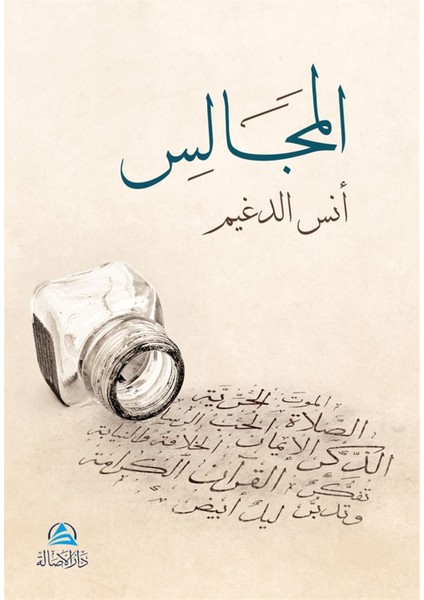 المَجَالِس
أنس الدغيم
الموت الحُرّيّة
الصَّلاة الحُبّ
الذِّكر الإيمان الخلافة والنيابة
تفكّر القرآن الكرامة
وتدبّر ليل أبيض
دار الأصالة